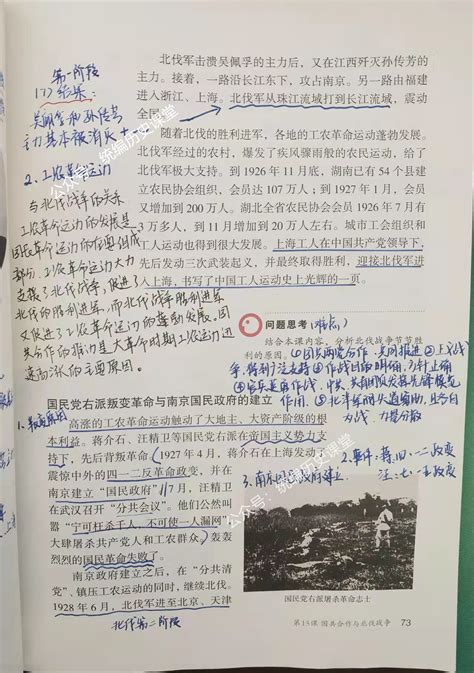 第一阶段
(7) 结果:
吴佩孚和孙传芳
主力基本被消灭
2、工农革命运动
与北伐战争的关系
工农革命运动的发展是
国民革命运动的重要组成
部分,工农革命运动大力
支援了北伐战争,促进了
北伐的胜利进军,而北伐战争胜利进军
又促进了工农革命运动的蓬勃发展,国
共合作的推动是大革命时期工农运动迅
速高涨的主要原因。
北伐军击溃吴佩孚的主力后,又在江西歼灭孙传芳的
主力。接着,一路沿长江东下,攻占南京。另一路由福建
进入浙江、上海。北伐军从珠江流域打到长江流域,震动
全国。
随着北伐的胜利进军,各地的工农革命运动蓬勃发展。
北伐军经过的农村,爆发了疾风骤雨般的农民运动,给了
北伐军极大支持。到 1926 年 11 月底,湖南已有 54 个县
建立农民协会组织,会员达 107 万人;到 1927 年 1 月,会员
又增加到 200 万人。湖北全省农民协会会员 1926 年 7 月有
3 万多人,到 11 月增加到 20 万人左右。城市工会组织和
工人运动也得到很大发展。上海工人在中国共产党领导下,
先后发动三次武装起义,并最终取得胜利,迎接北伐军进
入上海,书写了中国工人运动史上光辉的一页。
问题思考 (难点)
结合本课内容,分析北伐战争节节胜
利的原因。①国共两党合作,共同推进②正义战
争,得到广泛支持③作战目标明确,方针正确
④官兵英勇作战,中共党员团员发挥先锋模范
作用 ⑤北洋军阀失道寡助,且各自
为战,力量分散
国民党右派叛变革命与南京国民政府的建立
1、叛变原因
高涨的工农革命运动触动了大地主、大资产阶级的根
本利益。蒋介石、汪精卫等国民党右派在帝国主义势力支
持下,先后背叛革命。1927 年 4 月,蒋介石在上海发动
震惊中外的四一二反革命政变,并在
南京建立“国民政府”。7 月,汪精卫
在武汉召开“分共会议”。他们公然叫
嚣“宁可枉杀千人,不可使一人漏网”,
大肆屠杀共产党人和工农群众,轰轰
烈烈的国民革命失败了。
南京政府建立之后,在“分共清
党”、镇压工农运动的同时,继续北伐。
1928 年 6 月,北伐军进至北京、天津
北伐第二阶段
2、事件:蒋:四·一二政变
汪:七·一五政变
3、南京国民政府建立
国民党右派屠杀革命志士
第15课 国共合作与北伐战争 73
公众号:统编历史课堂
公众号:统编历史课堂